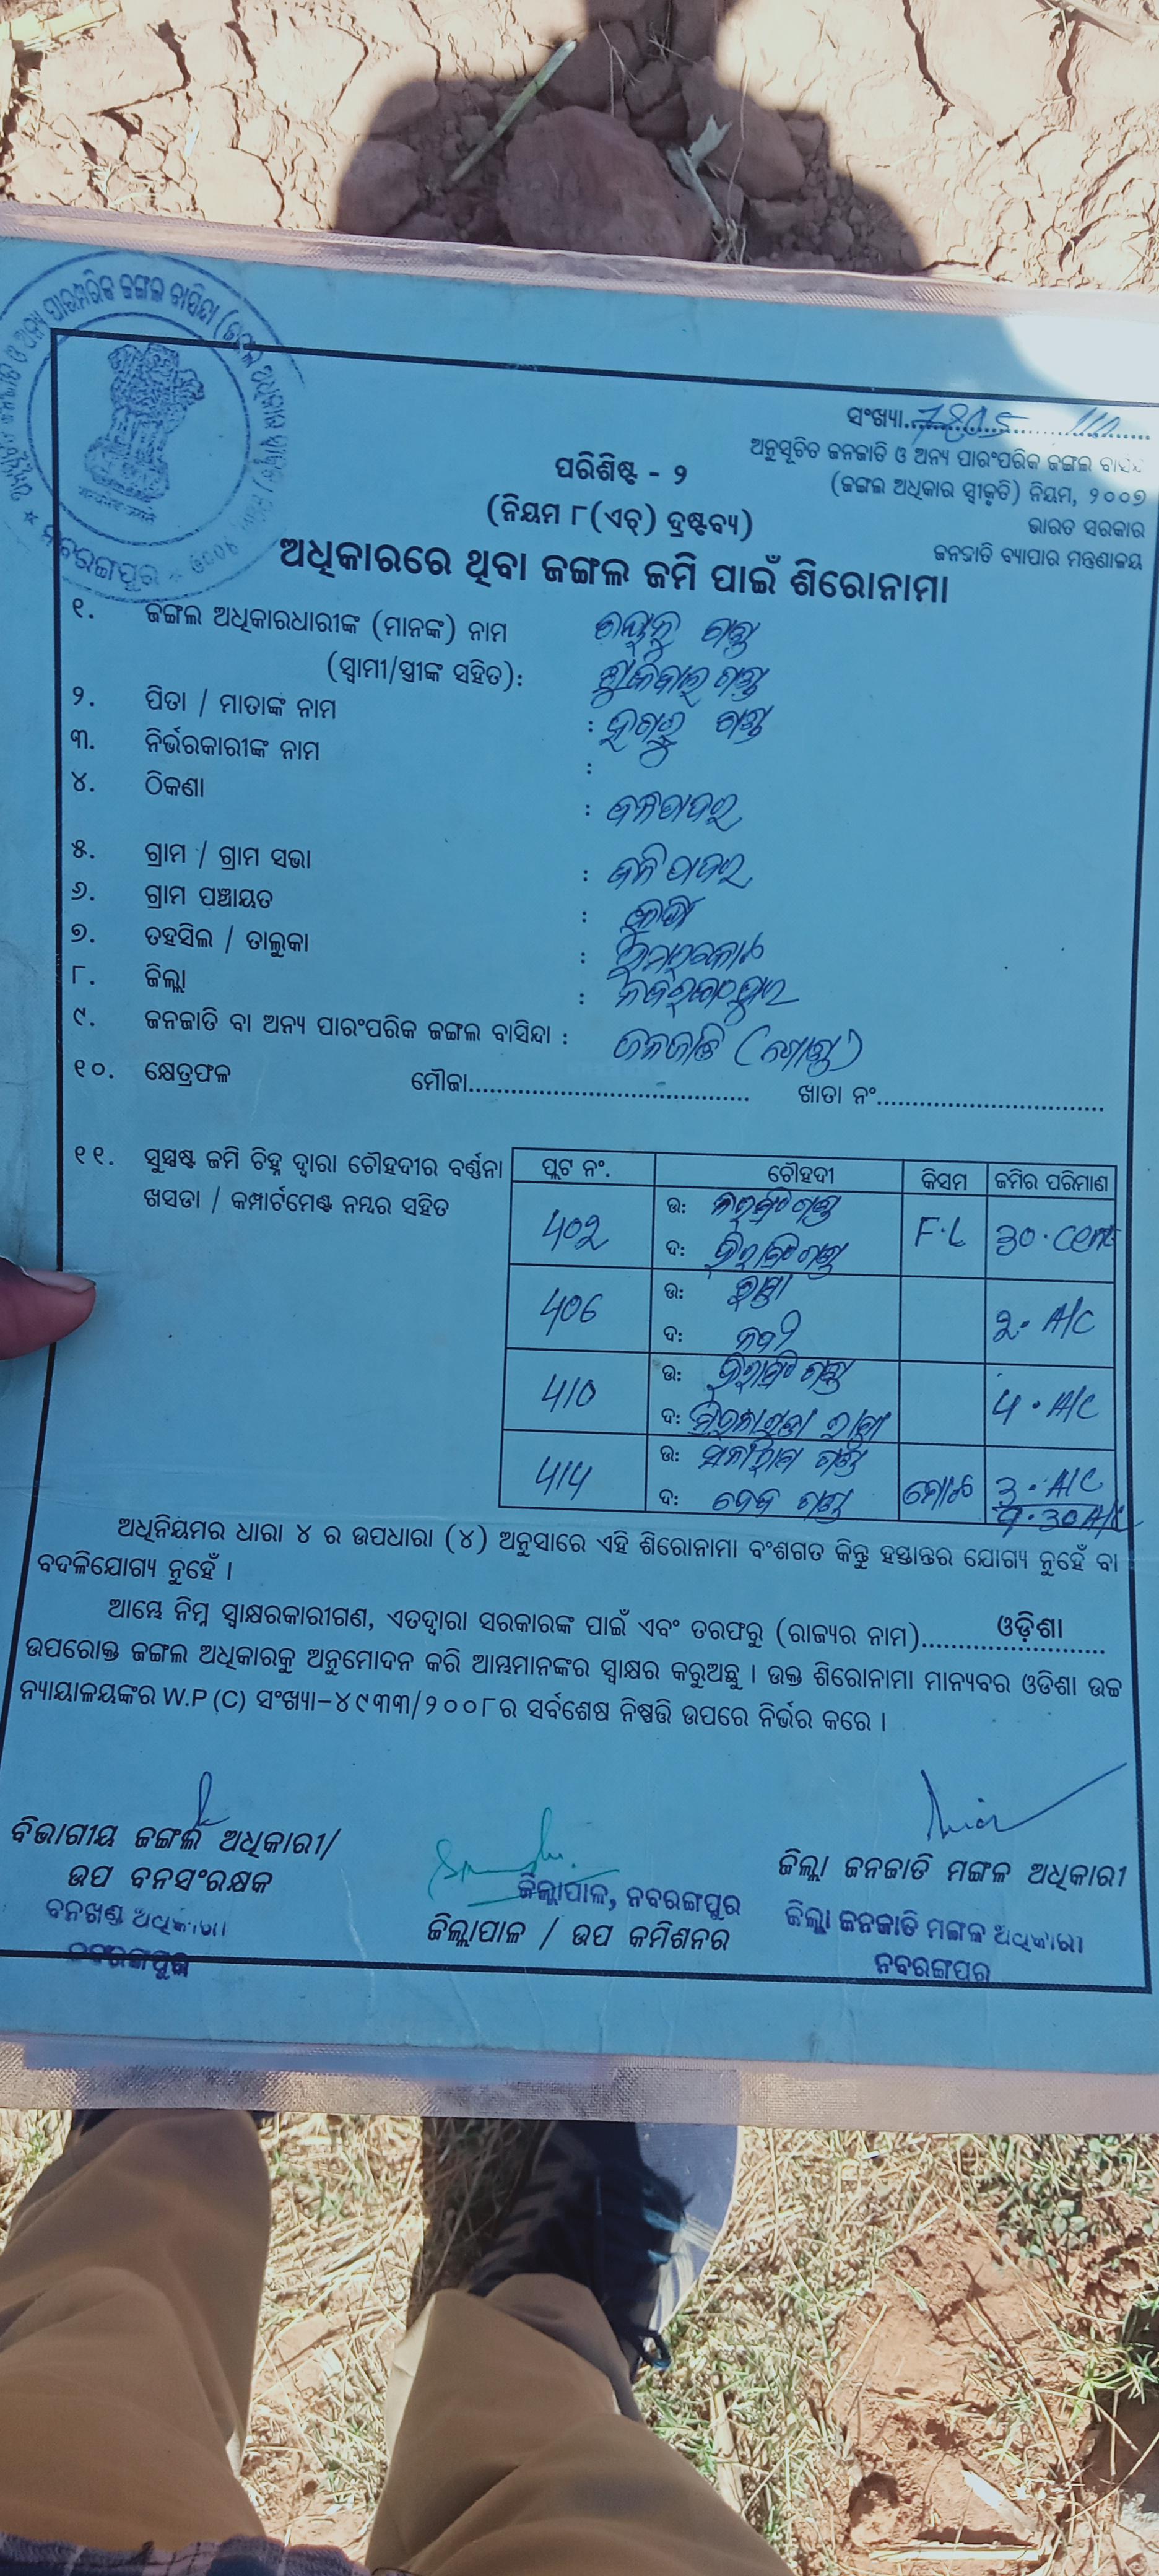 ସଂଖ୍ୟା 7805
ଅନୁସୂଚିତ ଜନଜାତି ଓ ଅନ୍ୟ ପାରଂପରିକ ଜଙ୍ଗଲ ବାସିନ୍ଦା
(ଜଙ୍ଗଲ ଅଧିକାର ସ୍ୱୀକୃତି) ନିୟମ, ୨୦୦୭
ଭାରତ ସରକାର
ଜନଜାତି ବ୍ୟାପାର ମନ୍ତ୍ରଣାଳୟ
ପରିଶିଷ୍ଟ - ୨
(ନିୟମ ୮(ଏଚ୍) ଦ୍ରଷ୍ଟବ୍ୟ)
ଅଧିକାରରେ ଥିବା ଜଙ୍ଗଲ ଜମି ପାଇଁ ଶିରୋନାମା
ନବରଙ୍ଗପୁର
୧. ଜଙ୍ଗଲ ଅଧିକାରଧାରୀଙ୍କ (ମାନଙ୍କ) ନାମ ଗଣ୍ଡ
(ସ୍ୱାମୀ/ସ୍ତ୍ରୀଙ୍କ ସହିତ): ଗଣ୍ଡ
୨. ପିତା / ମାତାଙ୍କ ନାମ : ଗଣ୍ଡ
୩. ନିର୍ଭରକାରୀଙ୍କ ନାମ :
୪. ଠିକଣା : ଜଳିପଦର
୫. ଗ୍ରାମ / ଗ୍ରାମ ସଭା : ଜଳିପଦର
୬. ଗ୍ରାମ ପଞ୍ଚାୟତ :
୭. ତହସିଲ / ତାଲୁକା : ଉମରକୋଟ
୮. ଜିଲ୍ଲା : ନବରଙ୍ଗପୁର
୯. ଜନଜାତି ବା ଅନ୍ୟ ପାରଂପରିକ ଜଙ୍ଗଲ ବାସିନ୍ଦା : ଜନଜାତି (ଗୋଣ୍ଡ)
୧୦. କ୍ଷେତ୍ରଫଳ ମୌଜା.................... ଖାତା ନଂ....................
୧୧. ସୁସ୍ପଷ୍ଟ ଜମି ଚିହ୍ନ ଦ୍ୱାରା ଚୌହଦୀର ବର୍ଣ୍ଣନା
ଖସଡା / କମ୍ପାର୍ଟମେଣ୍ଟ ନମ୍ବର ସହିତ
ପ୍ଲଟ ନଂ. ଚୌହଦୀ କିସମ ଜମିର ପରିମାଣ
402 ଉ: ଗଣ୍ଡ F.L 30.cent
ଦ: ଗଣ୍ଡ
406 ଉ: ରାସ୍ତା 2. A/C
ଦ: ନଦୀ
410 ଉ: ଗଣ୍ଡ 4. A/C
ଦ:
414 ଉ: ଗଣ୍ଡ ମୋଟ 3. A/C
ଦ: ଗଣ୍ଡ 9.30 A/C
ଅଧିନିୟମର ଧାରା ୪ ର ଉପଧାରା (୪) ଅନୁସାରେ ଏହି ଶିରୋନାମା ବଂଶଗତ କିନ୍ତୁ ହସ୍ତାନ୍ତର ଯୋଗ୍ୟ ନୁହେଁ ବା
ବଦଳିଯୋଗ୍ୟ ନୁହେଁ ।
ଆମ୍ଭେ ନିମ୍ନ ସ୍ୱାକ୍ଷରକାରୀଗଣ, ଏତଦ୍ୱାରା ସରକାରଙ୍କ ପାଇଁ ଏବଂ ତରଫରୁ (ରାଜ୍ୟର ନାମ)....ଓଡ଼ିଶା....
ଉପରୋକ୍ତ ଜଙ୍ଗଲ ଅଧିକାରକୁ ଅନୁମୋଦନ କରି ଆମ୍ଭମାନଙ୍କର ସ୍ୱାକ୍ଷର କରୁଅଛୁ । ଉକ୍ତ ଶିରୋନାମା ମାନ୍ୟବର ଓଡିଶା ଉଚ୍ଚ
ନ୍ୟାୟାଳୟଙ୍କର W.P (C) ସଂଖ୍ୟା-୪୯୩୩/୨୦୦୮ ର ସର୍ବଶେଷ ନିଷ୍ପତ୍ତି ଉପରେ ନିର୍ଭର କରେ ।
ବିଭାଗୀୟ ଜଙ୍ଗଲ ଅଧିକାରୀ/
ଉପ ବନସଂରକ୍ଷକ
ବନଖଣ୍ଡ ଅଧିକାରୀ
ନବରଙ୍ଗପୁର
ଜିଲ୍ଲାପାଳ, ନବରଙ୍ଗପୁର
ଜିଲ୍ଲାପାଳ / ଉପ କମିଶନର
ଜିଲ୍ଲା ଜନଜାତି ମଙ୍ଗଳ ଅଧିକାରୀ
ଜିଲ୍ଲା ଜନଜାତି ମଙ୍ଗଳ ଅଧିକାରୀ
ନବରଙ୍ଗପୁର